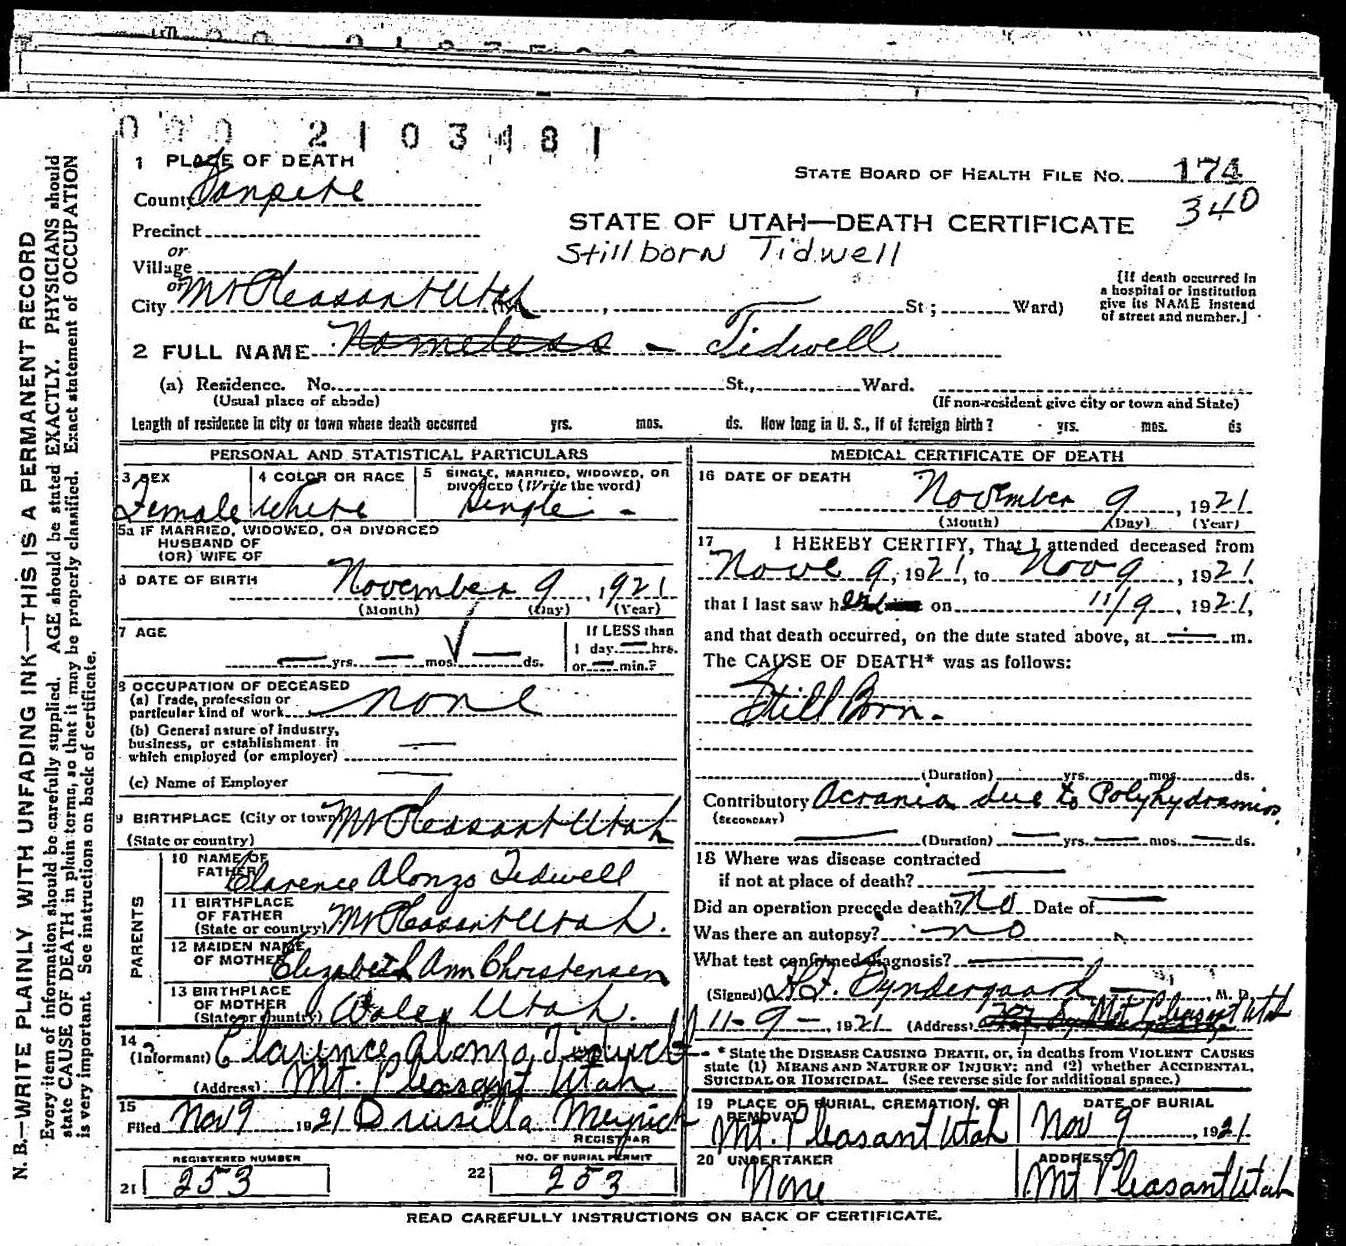 000 2103481
1 PLACE OF DEATH
STATE BOARD OF HEALTH FILE NO. 174
340
County Sanpete
STATE OF UTAH—DEATH CERTIFICATE
Precinct
Stillborn Tidwell
or
Village
or
City Mt Pleasant Utah (No. , St; Ward)
[If death occurred in
a hospital or institution
give its NAME instead
of street and number.]
2 FULL NAME Nameless - Tidwell
(a) Residence. No. St., Ward.
(Usual place of abode) (If non-resident give city or town and State)
Length of residence in city or town where death occurred yrs. mos. ds. How long in U. S., if of foreign birth? yrs. mos. ds
PERSONAL AND STATISTICAL PARTICULARS
3 SEX Female
4 COLOR OR RACE White
5 SINGLE, MARRIED, WIDOWED, OR
DIVORCED (Write the word)
Single -
5a IF MARRIED, WIDOWED, OR DIVORCED
HUSBAND OF
(OR) WIFE OF
6 DATE OF BIRTH November 9, 1921
(Month) (Day) (Year)
7 AGE
— yrs. — mos. — ds.
If LESS than
1 day — hrs.
or — min.?
8 OCCUPATION OF DECEASED
(a) Trade, profession or
particular kind of work none
(b) General nature of industry,
business, or establishment in
which employed (or employer) —
(c) Name of Employer —
9 BIRTHPLACE (City or town) Mt Pleasant Utah
(State or country)
PARENTS
10 NAME OF
FATHER Clarence Alonzo Tidwell
11 BIRTHPLACE
OF FATHER
(State or country) Mt Pleasant Utah.
12 MAIDEN NAME
OF MOTHER Elizabeth Ann Christensen
13 BIRTHPLACE
OF MOTHER
(State or country) Wales Utah.
14
(Informant) Clarence Alonzo Tidwell
(Address) Mt. Pleasant Utah
15
Filed Nov 9 1921 Drusilla
REGISTRAR
REGISTERED NUMBER
21 253
NO. OF BURIAL PERMIT
22 253
MEDICAL CERTIFICATE OF DEATH
16 DATE OF DEATH
November 9, 1921
(Month) (Day) (Year)
17 I HEREBY CERTIFY, That I attended deceased from
Nove 9, 1921, to Nov 9, 1921
that I last saw her on 11/9, 1921,
and that death occurred, on the date stated above, at — m.
The CAUSE OF DEATH* was as follows:
Still Born.
(Duration) yrs. mos. ds.
Contributory Acrania due to Polyhydramios.
(SECONDARY)
— (Duration) — yrs. — mos. — ds.
18 Where was disease contracted
if not at place of death? —
Did an operation precede death? No Date of —
Was there an autopsy? no
What test confirmed diagnosis? —
(Signed) Syndergaard, M. D.
11-9-, 1921 (Address) Mt Pleasant Utah
* State the DISEASE CAUSING DEATH, or, in deaths from VIOLENT CAUSES
state (1) MEANS AND NATURE OF INJURY; and (2) whether ACCIDENTAL,
SUICIDAL OR HOMICIDAL. (See reverse side for additional space.)
19 PLACE OF BURIAL, CREMATION, OR
REMOVAL
Mt. Pleasant Utah
DATE OF BURIAL
Nov 9, 1921
20 UNDERTAKER
None
ADDRESS
Mt Pleasant Utah
READ CAREFULLY INSTRUCTIONS ON BACK OF CERTIFICATE.
N. B.—WRITE PLAINLY WITH UNFADING INK—THIS IS A PERMANENT RECORD
Every item of information should be carefully supplied. AGE should be stated EXACTLY. PHYSICIANS should
state CAUSE OF DEATH in plain terms, so that it may be properly classified. Exact statement of OCCUPATION
is very important. See instructions on back of certificate.